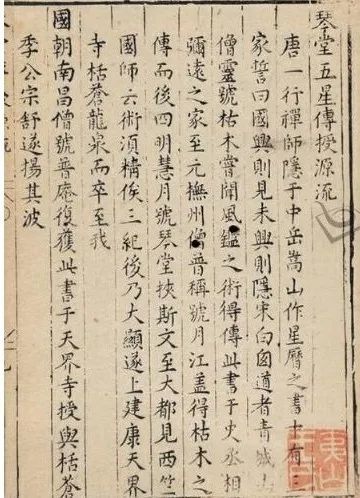 琴堂五星傳授源流
唐一行禪師隱于中岳嵩山作星曆之書十有三
家誓曰國興則見未興則隱宋白囪道者青城山
僧靈號枯木嘗開風鑑之術得傳此書于史丞相
彌遠之家至元撫州僧普稱號月江盖得枯木之
傳而後四明慧月號琴堂挾斯文至大都見西竺
國師云術須精俟三紀後乃大顯遂上建康天界
寺栝蒼龍泉而卒至我
國朝南昌僧號普庵復獲此書于天界寺授與栝蒼
季公宗舒遂揚其波